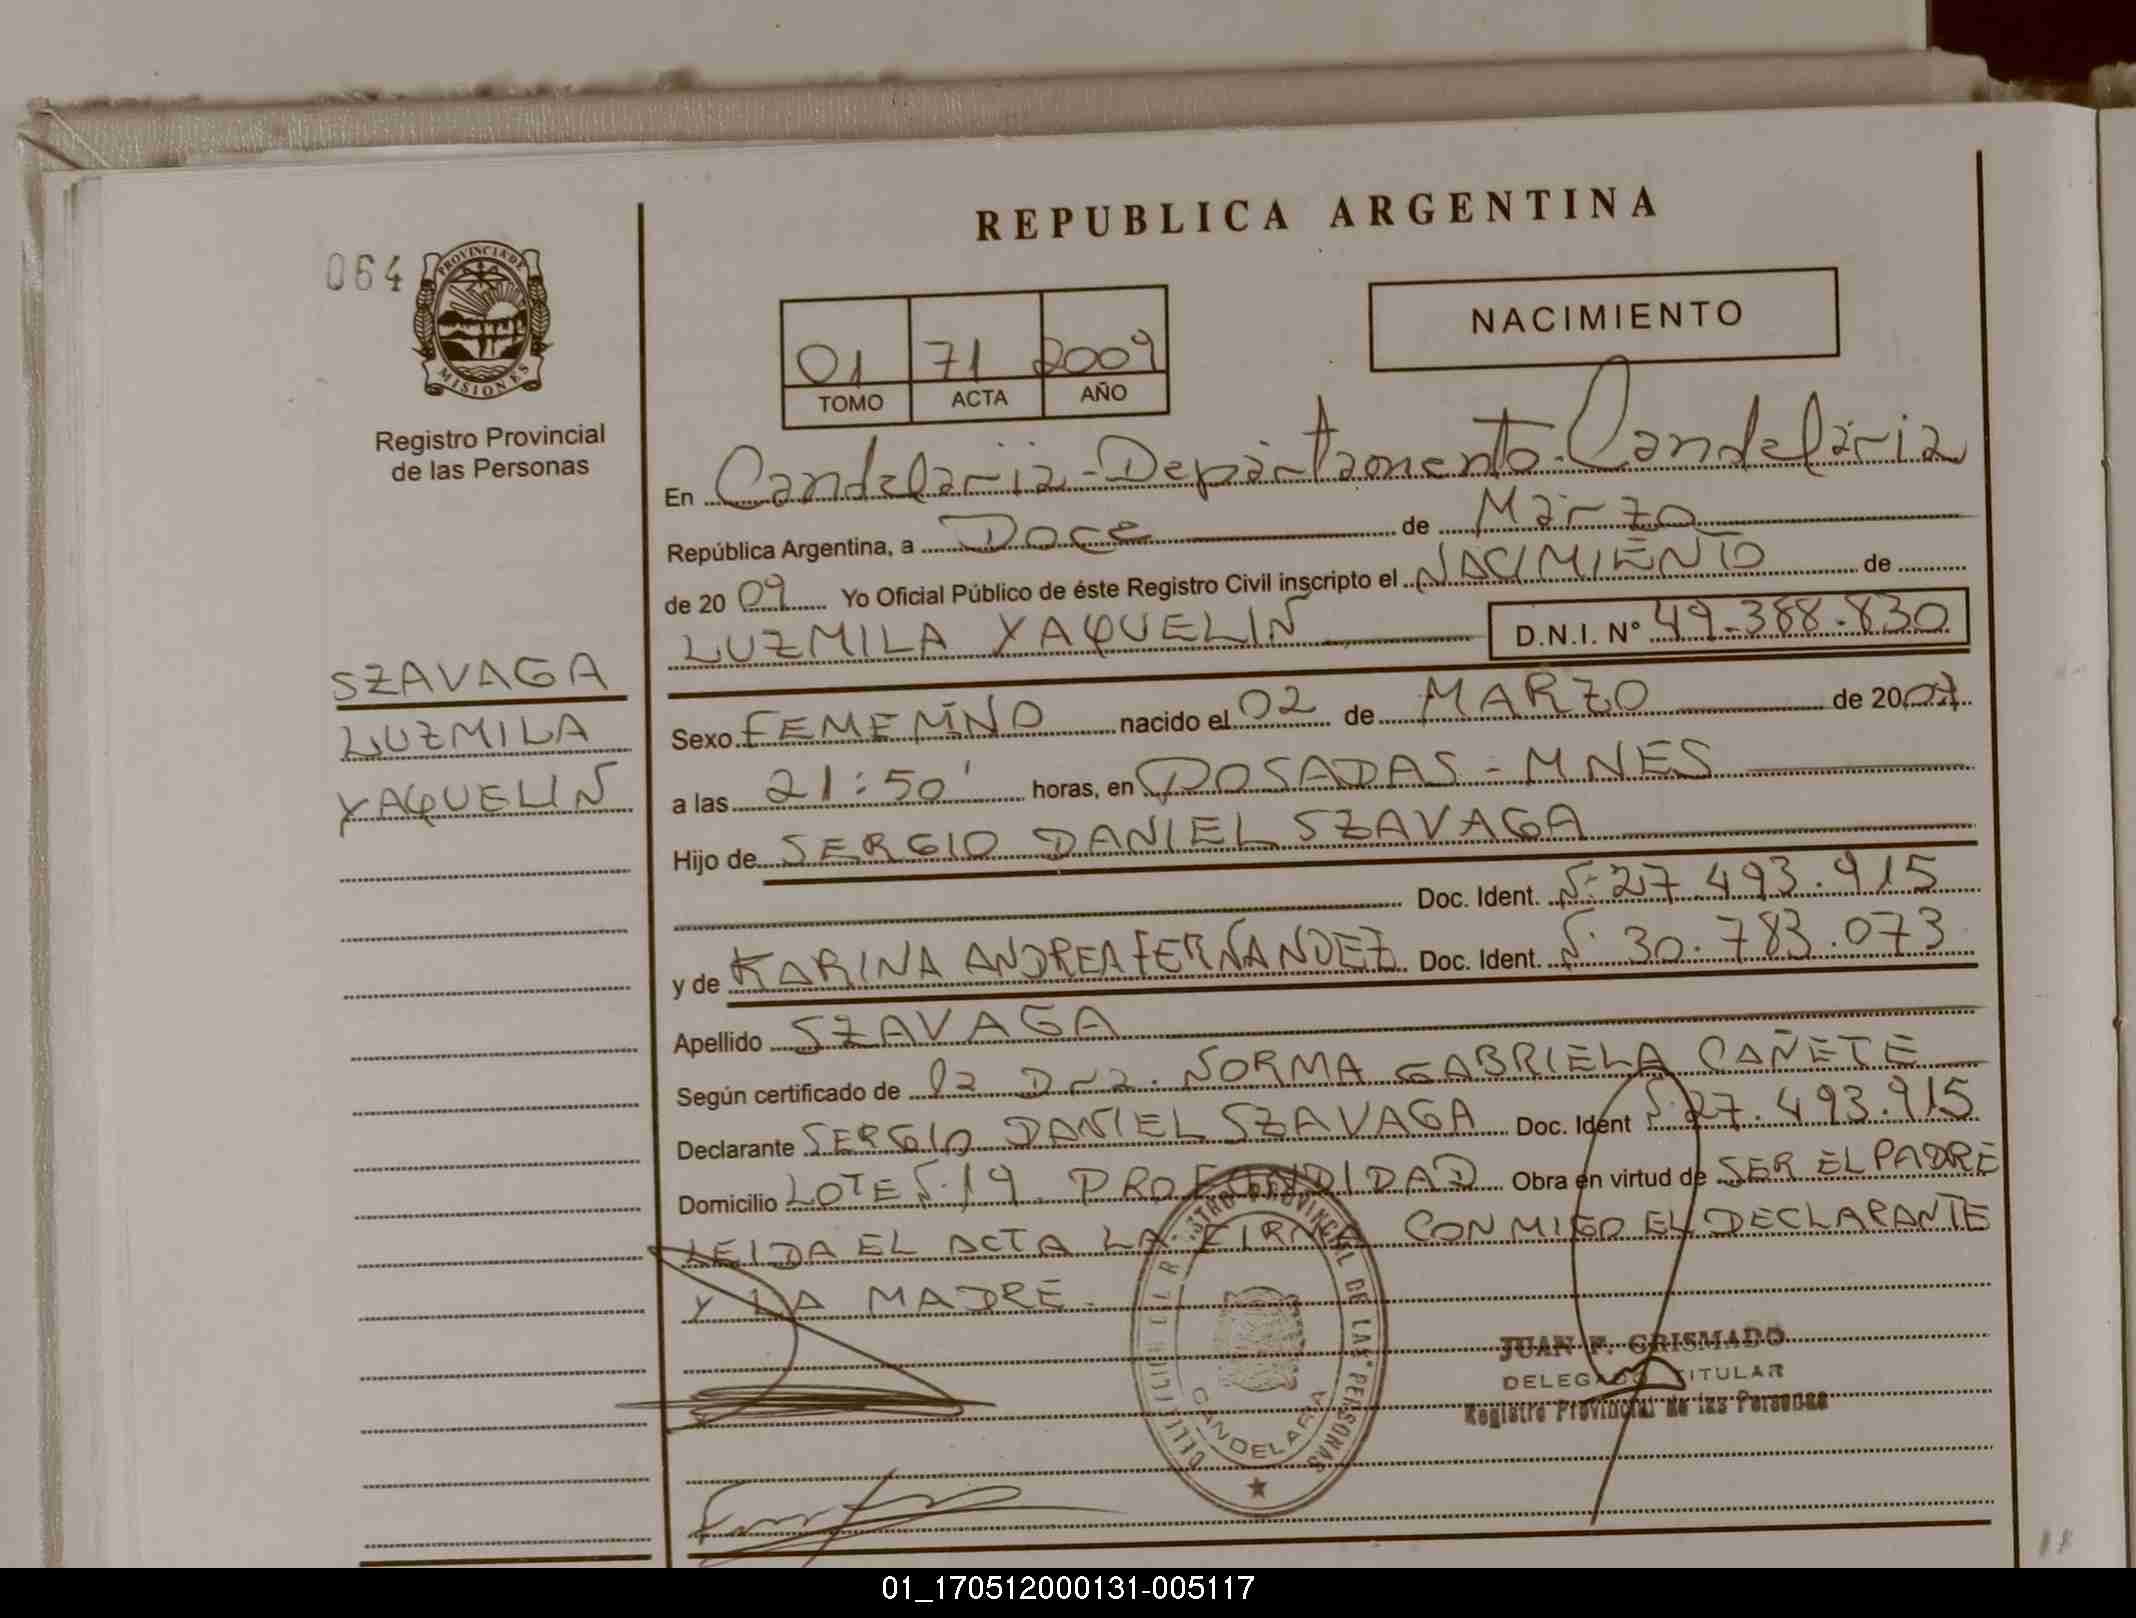 REPUBLICA ARGENTINA
064
PROVINCIA DE
MISIONES
Registro Provincial
de las Personas
01 71 2009
TOMO ACTA AÑO
NACIMIENTO
En Candelaria - Departamento Candelaria
República Argentina, a Doce de Marzo
de 2009 Yo Oficial Público de éste Registro Civil inscripto el NACIMIENTO de
LUZMILA YAQUELIN D.N.I. Nº 49.388.830
SZAVAGA
LUZMILA
YAQUELIN
Sexo FEMENINO nacido el 02 de MARZO de 20
a las 21:50' horas, en POSADAS - MNES
Hijo de SERGIO DANIEL SZAVAGA
Doc. Ident. N: 27.493.915
y de KARINA ANDREA FERNANDEZ Doc. Ident. N: 30.783.073
Apellido SZAVAGA
Según certificado de la Dra. NORMA GABRIELA CAÑETE
Declarante SERGIO DANIEL SZAVAGA Doc. Ident N: 27.493.915
Domicilio LOTE N.19 PROFUNDIDAD Obra en virtud de SER EL PADRE
LEIDA EL ACTA LA FIRMA CONMIGO EL DECLARANTE
Y LA MADRE.
PROVINCIAL DE LAS PERSONAS
CANDELARIA
JUAN F. GRISMADO
DELEGADO TITULAR
Registro Provincial de las Personas
01_170512000131-005117